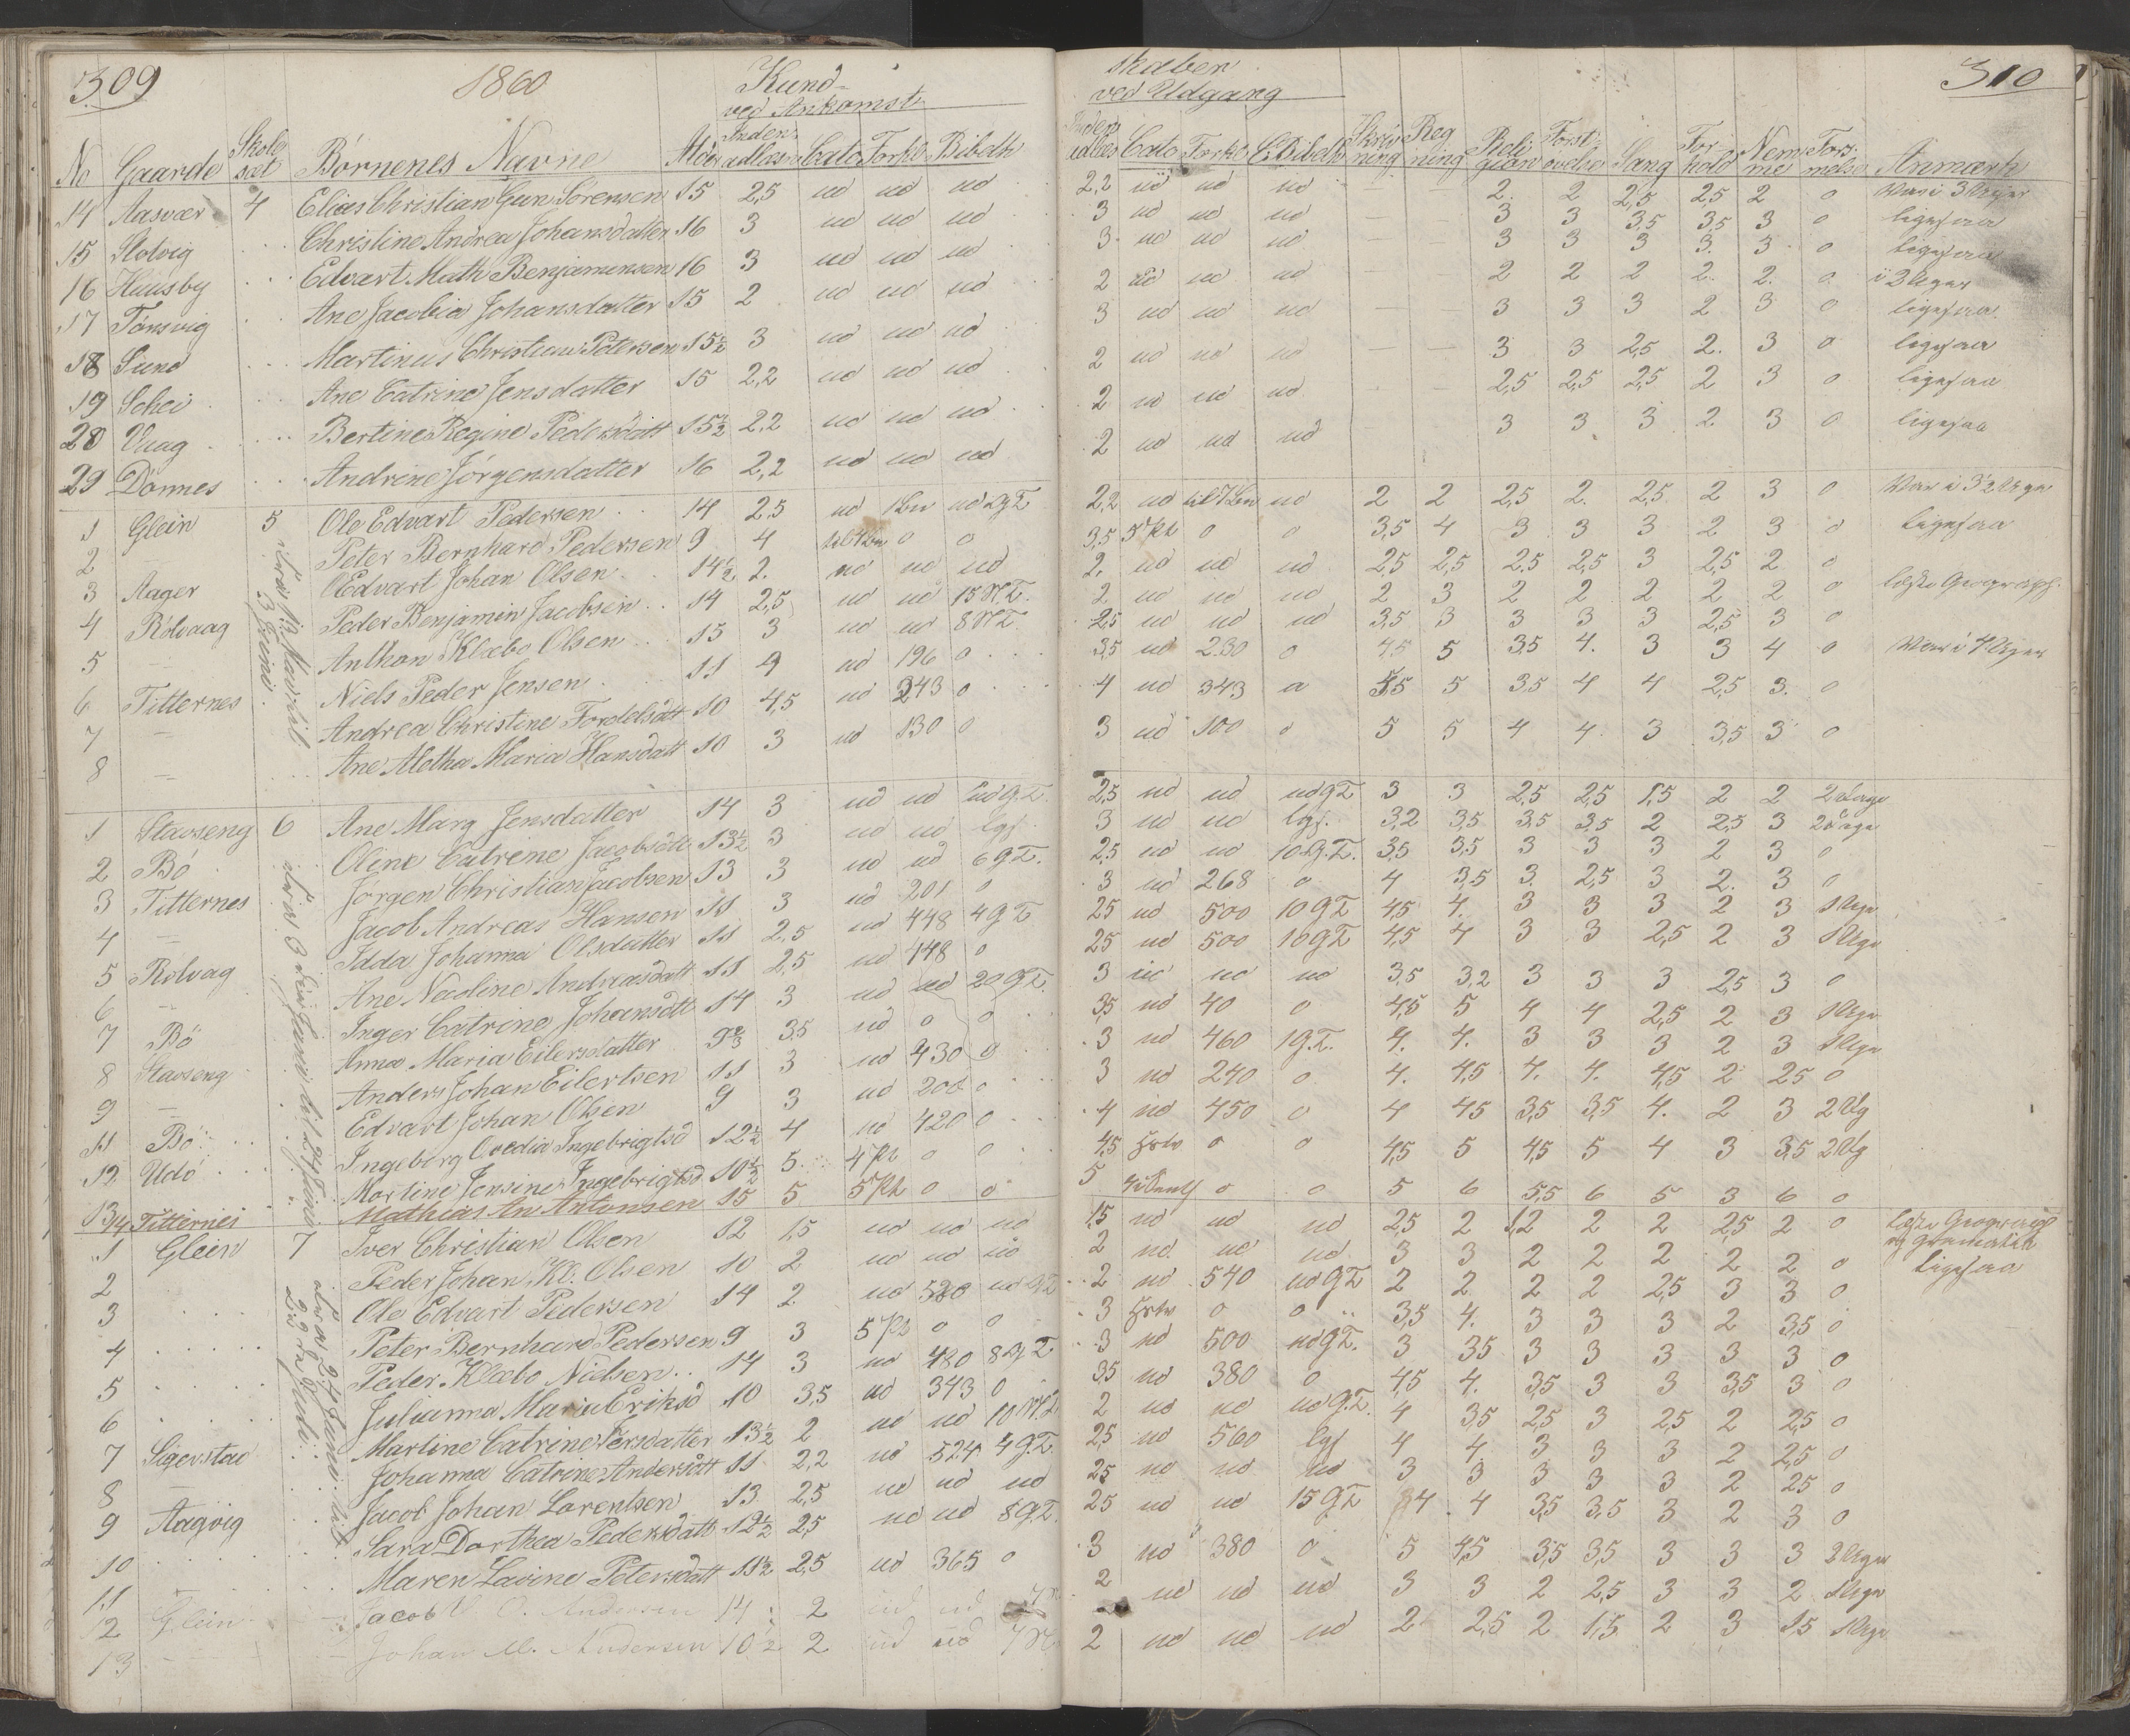 309
1860
Kund-
ved Ankomst
No Gaarde Skole sæt Børnenes Navne Alder Inden adlæsn Cato Forkl Bibelh
14 Aasvær 4 Elias Christian Gun Sørensen 15 2,5 ud ud ud
15 Slotvig Christine Andrea Johansdatter 16 3 ud ud ud
16 Huusby Edvart Math Benjaminsen 16 3 ud ud ud
17 Tønsvig Ane Jacobia Johansdatter 15 2 ud ud ud
18 Sund Martinus Christian Petersen 15½ 3 ud ud ud
19 Schei Ane Catrine Jensdatter 15 2,2 ud ud ud
20 Vaag Bertine Regine Pedersdatt 15½ 2,2 ud ud ud
29 Dønnes Andrine Jørgensdatter 16 2,2 ud ud ud
1 Glein 5 Ole Edvart Pedersen 14 2,5 ud ud 2gT
2 Peter Bernhard Pedersen 9 4 0 0
3 Aager OEdvart Johan Olsen 14½ 2. ud ud ud
4 Rølvaag Peder Benjamin Jacobsen 14 2,5 ud ud 15 NT.
5 — Anthon Klæbo Olsen 15 3 ud ud 8 NT
6 Titternes Niels Peder Jensen 11 4 ud 196 0
7 — Andrea Christine Tordelsdtt 10 4,5 ud 243 0
8 — Ane Aletha Maria Hansdatt 10 3 ud 130 0
1 Stavseng 6 Ane Marg Jensdatter 14 3 ud ud ud g.T.
2 Bø Oline Catrene Jacobsdtt 13½ 3 ud ud lgs.
3 Titternes Jørgen Christian Jacobsen 13 3 ud ud 6 g.T.
4 — Jacob Andreas Hansen 11 3 ud 201 0
5 Rølvag Idda Johanna Olsdatter 11 2,5 ud 448 4 g T
6 — Ane Nicoline Andreasdatt 11 2,5 ud 448 0
7 Bø Inger Catrine Johansdtt 14 3 ud ud 20 gT.
8 Stavseng Anna Maria Eilersdatter 3,5 ud 0 0
9 — Anders Johan Eilertsen 11 3 ud 430 0
11 Bø Edvart Johan Olsen 9 3 ud 208 0
12 Udø Ingeborg Ovedia Ingebrigtsd 12½ 4 ud 420 0
13 Martine Jensine Ingebrigtsd 10½ 5 4 Pt 0 0
14 Titternes Mathias An Antonsen 15 5 5 Pt 0 0
1 Glein 7 Iver Christian Olsen 12 1,5 ud ud ud
2 Peder Johan Kl. Olsen 10 2 ud ud ud
3 Ole Edvart Pedersen 14 2 ud 520 ud gT
4 Peter Bernhard Pedersen 9 3 5 Pt 0 0
5 Peder Klæbo Nielsen 14 3 ud 480 8 g T
6 Julianna Maria Eriksd 10 3,5 ud 343 0
7 Sigerstad Martine Catrine Persdatter 13½ 2 ud ud 10 NT
8 — Johanna Catrine Andersdtt 11 2,2 ud 524 4 g.T.
9 Aagvig Jacob Johan Lorentsen 13 2,5 ud ud ud
10 Sara Dorthea Pedersdatt 12½ 2,5 ud ud 8 gT.
11 — Maren Lavine Petersdatt 11½ 2,5 ud 365 0
12 Glein Jacob Andersen 14 2 ud ud
13 — Johan M. Andersen 10½ 2 ud ud 7 N
310
skaber
ved Udgang
Inden adlæs Cato Forkl Bibelh Skriv ning Reg ning Reli gion Forst. øvelse Sang For hold Nem me Fors. melse Anmærk
2,2 ud ud ud 2. 2 2,5 2,5 2 0 Var i 3 Uger
3 ud ud ud — — 3 3 3,5 3,5 3 0 ligesaa
3 ud ud ud — — 3 3 3 3. 3 0 ligesaa
2 ud ud ud 2 2 2 2. 2. 0 i 2 Uger
3 ud ud ud — — 3 3 3 2 3 0 ligesaa
2 ud ud ud — — 3 3 2,5 2. 3 0 ligesaa
2 ud ud ud — — 2,5 2,5 2,5 2 3 0 ligesaa
2 ud ud ud 3 3 3 2 3 0 ligesaa
2,2 ud ud 2 2 2,5 2. 2,5 2 3 0 Var i 3½ Uger
3,5 5 Pt 0 0 3,5 4 3 3 3 2 3 0 ligesaa
2, ud ud ud 2,5 2,5 2,5 2,5 3 2,5 2 0
2 ud ud ud 2 3 2 2 2 2 2 0 læste Geograph.
2,5 ud ud ud 3,5 3 3 3 3 2,5 3 0
3,5 ud 230 0 4,5 5 3,5 4. 3 3 4 0 Var i 4 Uger
4 ud 343 0 4,5 5 3,5 4 4 2,5 3. 0
3 ud 100 0 5 5 4 4. 3 3,5 3 0
2,5 ud ud ud gT 3 3 2,5 2,5 1,5 2 2 2 Dage
3 ud ud lgs. 3,2 3,5 3,5 3,5 2 2,5 3 2 Dage
2,5 ud ud 10 g.T. 3,5 3,5 3 3 3 2 3 0
3 ud 268 0 4 3,5 3. 2,5 3 2. 3 0
2,5 ud 500 10 gT 4,5 4. 3 3 3 2 3 1 Uge
2,5 ud 500 10 gT 4,5 4 3 3 2,5 2 3 1 Uge
3 ud ud ud 3,5 3,2 3 3 3 2,5 3 0
3,5 ud 40 0 4,5 5 4 4 2,5 2 3 1 Uge
3 ud 460 1 g.T. 4. 4. 3 3 3 2 3 1 Uge
3 ud 240 0 4. 4,5 4. 4. 4,5 2 2,5 0
4 ud 450 0 4 4,5 3,5 3,5 4. 2 3 2 Ug
4,5 0 0 4,5 5 4,5 5 4 3 3,5 2 Ug
5 0 0 5 6 5,5 6 5 3 6 0
1,5 ud ud ud 2,5 2 1,2 2 2 2,5 2 0 læste Geographi og Gramatik
2 ud ud ud 3 3 2 2 2 2 2 0 ligesaa
2 ud 540 ud gT 2 2 2 2 2,5 3 3 0
3 0 0 3,5 4. 3 3 3 2 3,5 0
3 ud 500 ud gT. 3 3,5 3 3 3 3 3 0
3,5 ud 380 0 4,5 4. 3,5 3 3 3,5 3 0
2 ud ud ud g.T. 4 3,5 2,5 3 2,5 2 2,5 0
2,5 ud 560 lgs 4 4 3 3 3 2 2,5 0
2,5 ud ud ud 3 3 3 3 3 2 2,5 0
2,5 ud ud 15 gT 4 4 3,5 3,5 3 2 3 0
3 ud 380 0 5 4,5 3,5 3,5 3 3 3 2 Uger
2 ud ud ud 3 3 2 2,5 3 3 2 1 Uge
2 ud ud ud 2 2,5 2 1,5 2 3 1,5 1 Uge